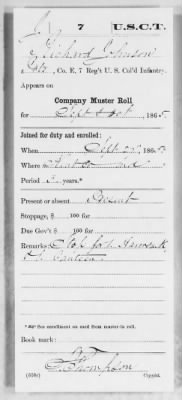 J 7 U.S.C.T.
Richard Johnson
Pvt, Co. E, 7 Reg't U. S. Col'd Infantry.
Appears on
Company Muster Roll
for Sept & Oct, 1865.
Joined for duty and enrolled:
When Sept 27, 1863
Where
Period 3 years.*
Present or absent Present
Stoppage, $ 100 for
Due Gov't $ 100 for
Remarks: Stop for 1 Haversack
1 Canteen
*See enrollment on card from muster-in roll.
Book mark:
Thompson
(358c) Copyist.